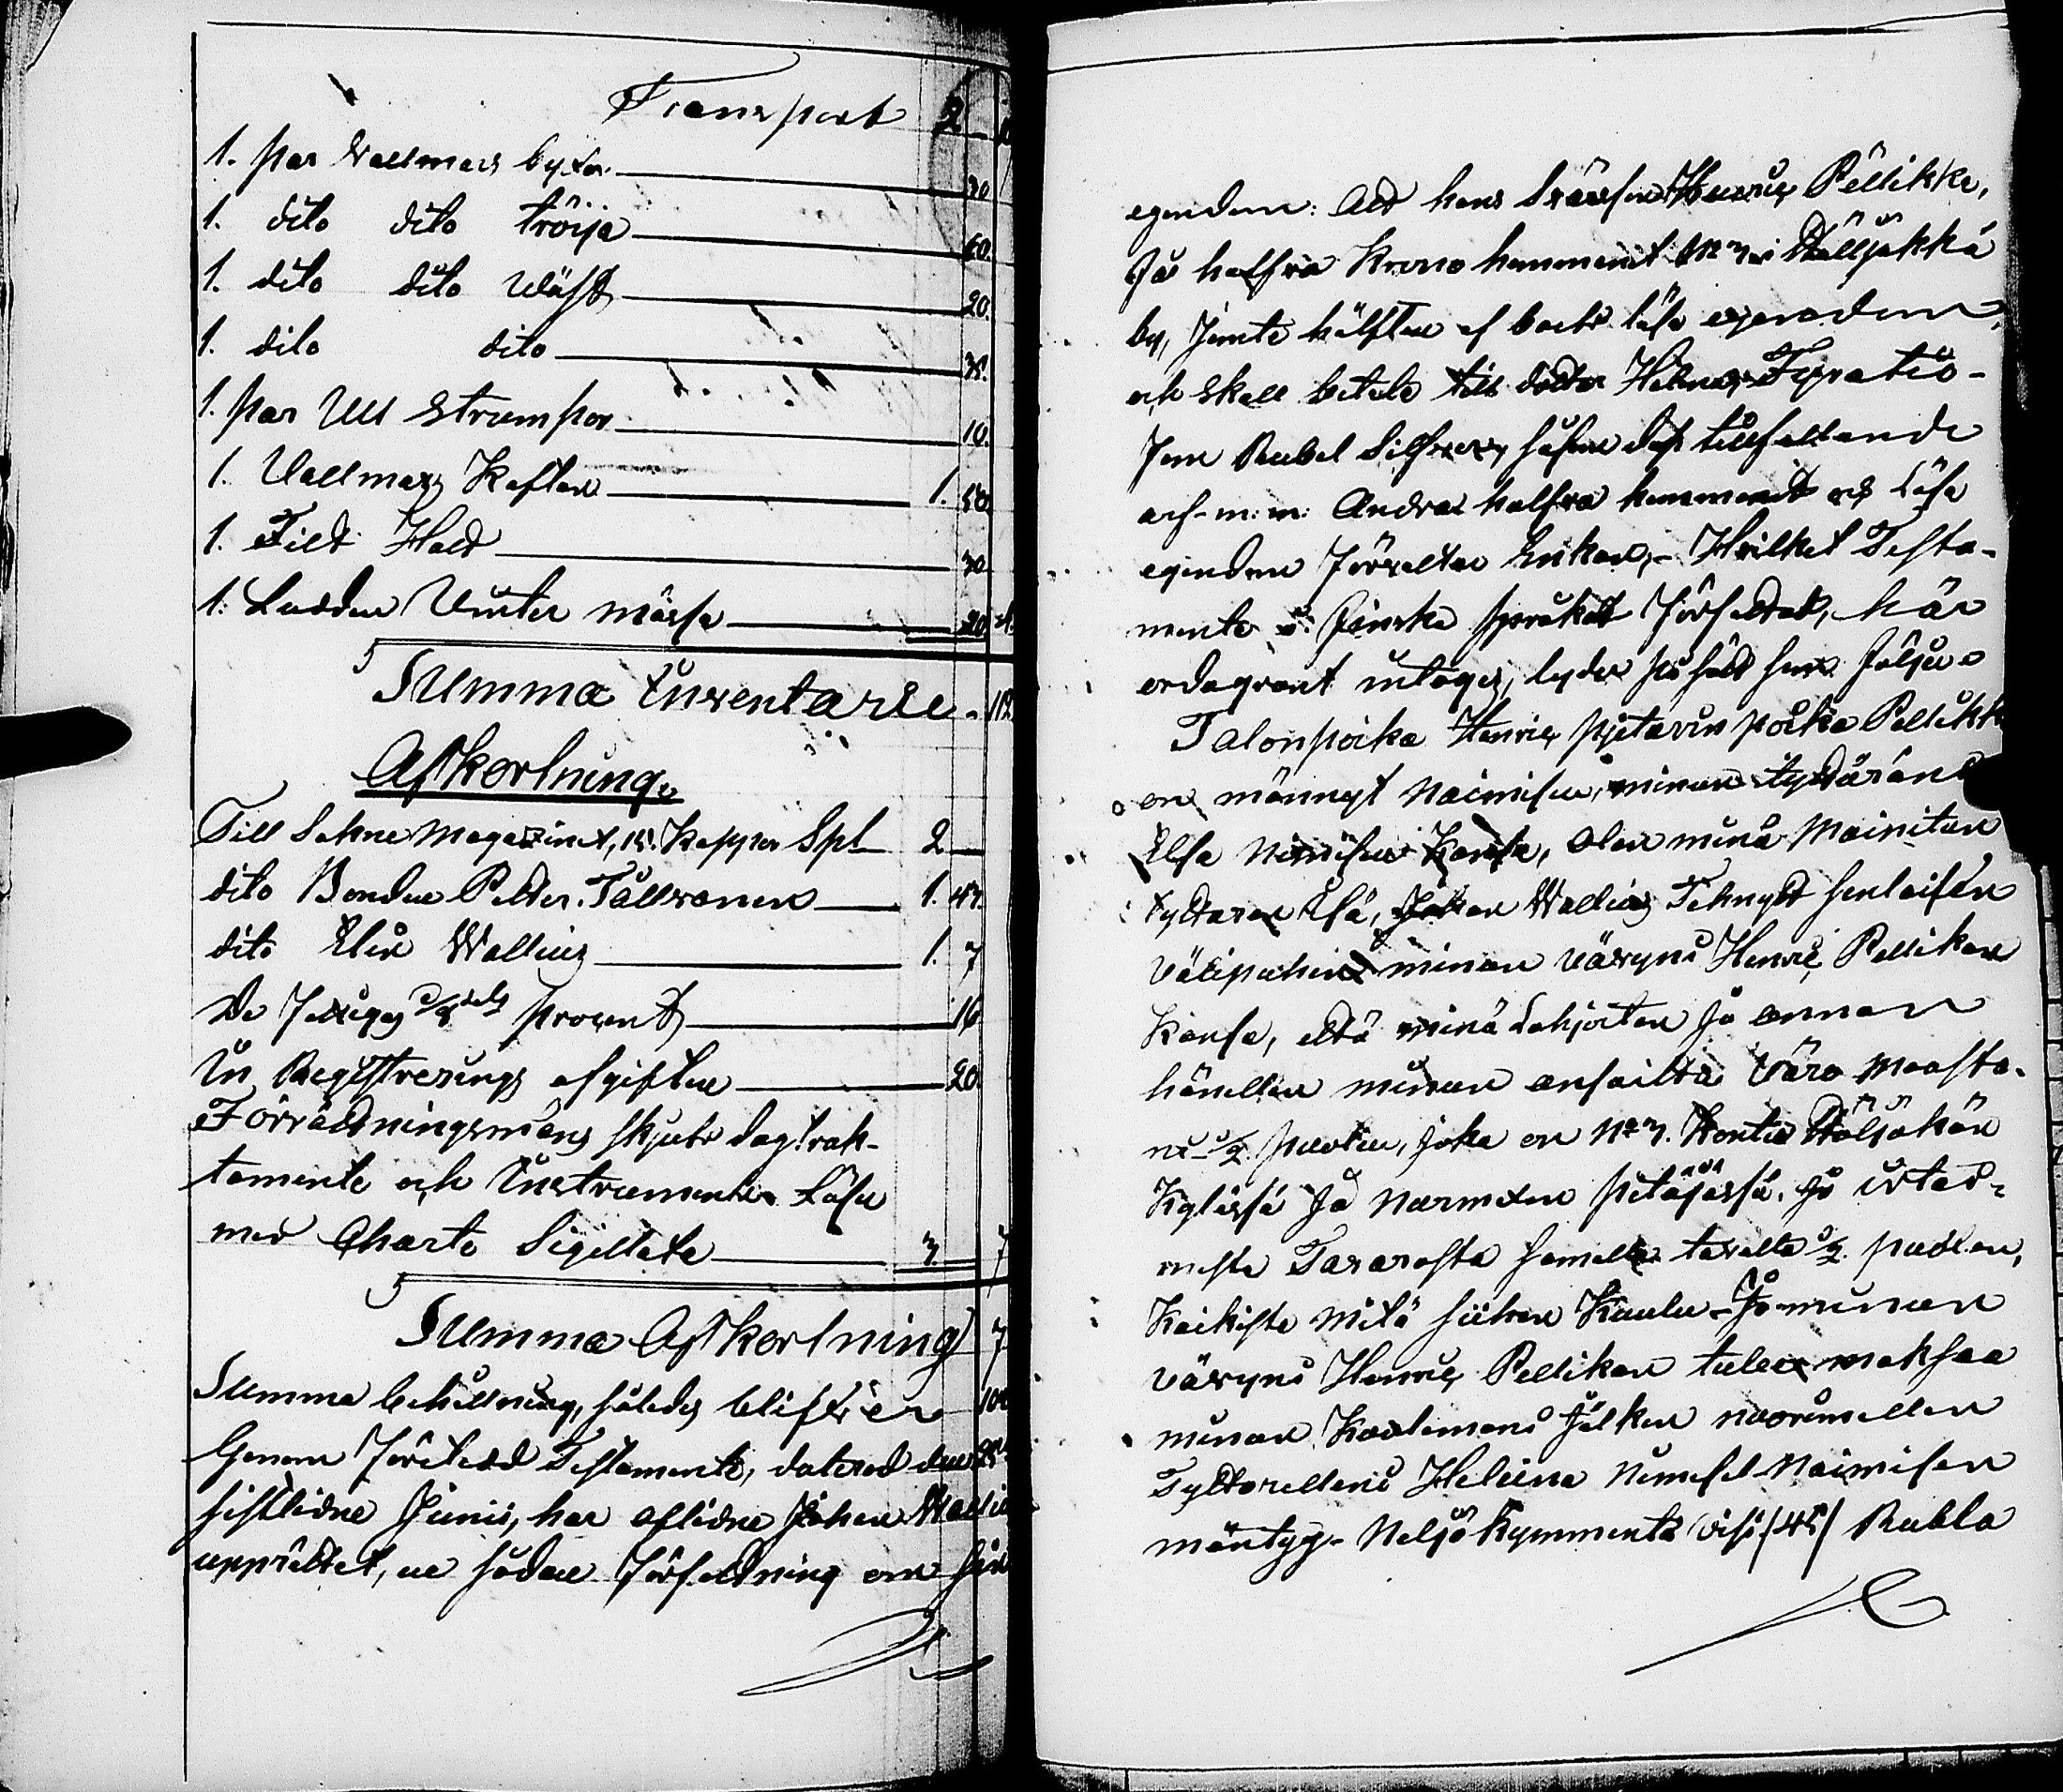 Transport 2
1. par Vallmars byxor 20
1. dito dito tröija 60.
1. dito dito Wäst 20.
1. dito dito 35.
1. par Ull Strumpor 10.
1. Vallmars Kaftan 1. 50.
1. Filt Hatt 30
1. Ludden Vinter mössa 20.
Summa Inventarie
Afkortning.
Till Sokne Magazinet, 15. Kappor Spl 2
dito Bonden Petter Tallvanen 1. 47.
dito Elin Wallius 1. 7
De procent 16
In Registrerings afgiften 20
Förrättningsmans skjuts dagtrak-
tamente och Instrumentes Lösen
med Charta Sigillata 3. 7
Summa Afkortning 7
Summa behållning, således blifver 10
Genom företedd Testamente, daterad den
sistlidne Junii, har aflidne Johan
upprättet, en sådan författning om sin
egendom: Att hans Svärson Henric Pellikka,
får halfva Krono hemmanet No 3 i
by, jemte hälften af börds lösa egendom,
och skall betala till dottren Helena Fyratio-
fem Rubel Silfver, såsom dess tillfallande
arf m:m: Andra halfva hemmanet och Lösa
egendom förvaltar Enkan, Hvilket Testa-
mente i Finska språket författat, här
ordagrant intages, lyder på sätt som följer
Talonpoika Henric Pjetarin poika Pellikk
on männyt Naimisen, minun tyttäräni
Elsa Nimisen Kansa, Olen minä Mainitun
tyttaren Isä, Johan Wallius Tehnyt senlaisen
Välipuhen minun vävyni Henric Pellikan
Kansa, että minä Lahjoitan ja annan
hänellen minun ansaitta Väro Maasta-
ni 1/2 puolen, joka on No 3. Kontio
Kylässä ja Nurmexen Pitäjässä. Ja irtai-
mesta Tavarasta samalla tavalla 1/2 puolen,
Kaikista mitä siihen Kuulu. Ja minun
vävyni Henric Pellikan tulee maksaa
minun Kuolemani jälken nuorimellen
Tyttarelleni Heleena Nimiset Naimisen
mäntyy. Neljä Kymmentä Visi (45) Rubla